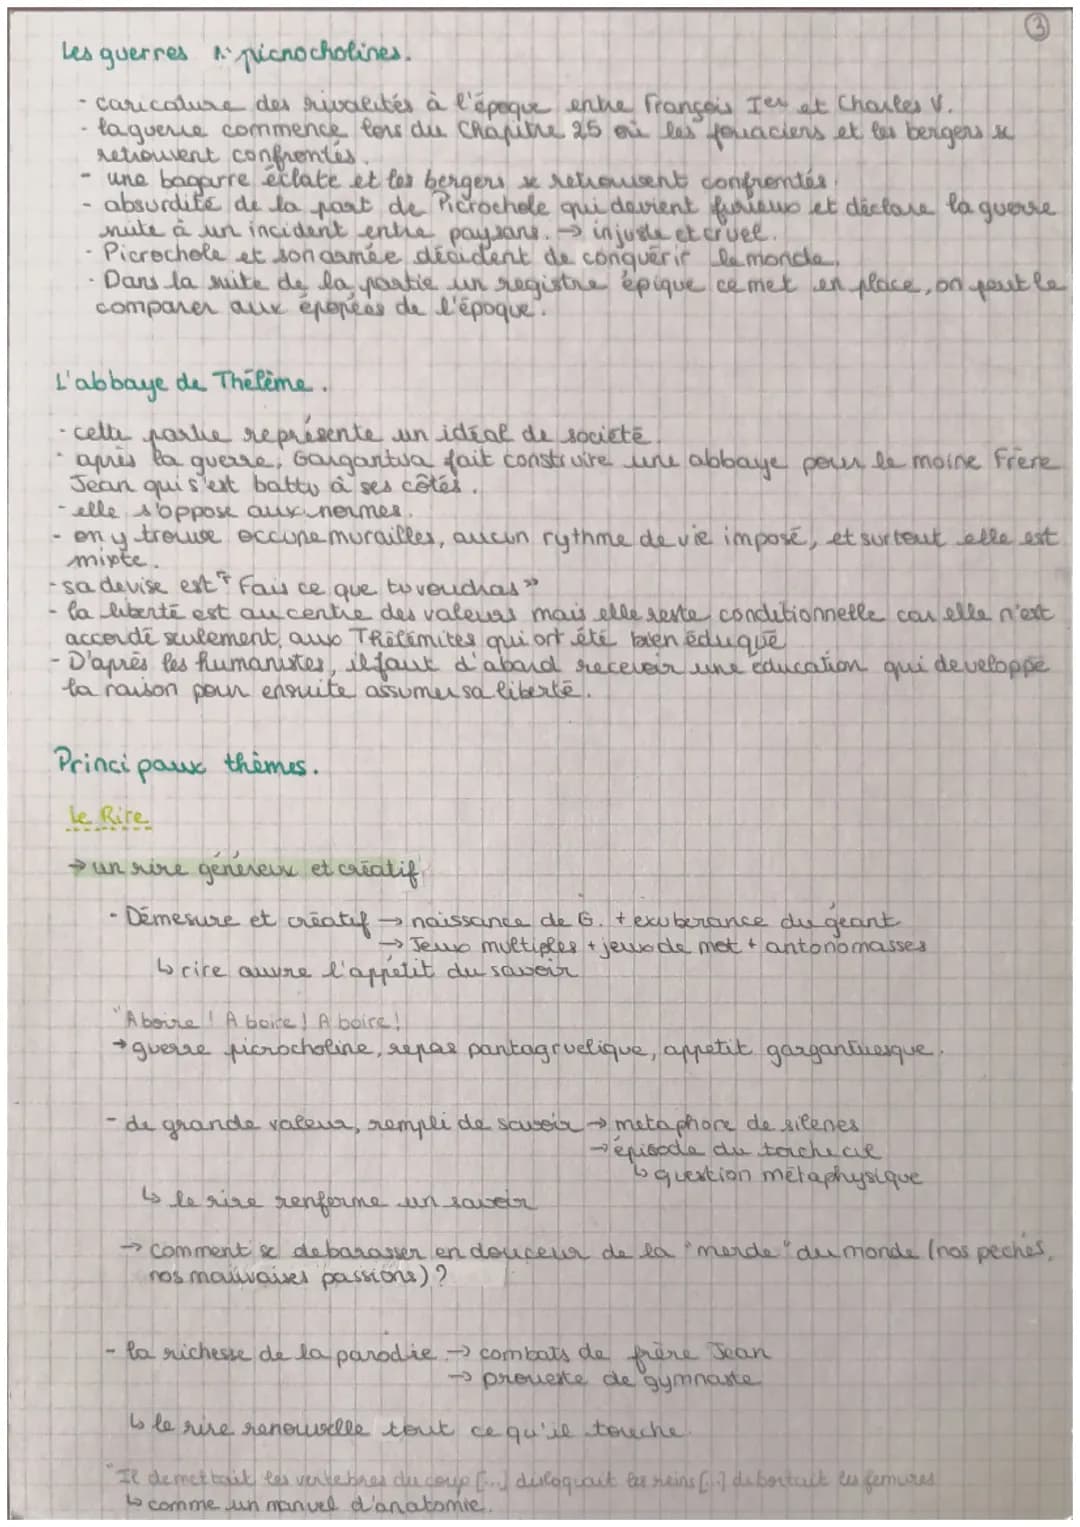 3
Les guerres picrocholines.
- caricature des rivalités à l'époque entre François Ier et Charles V.
- la guerre commence lors du Chapitre 25 où les fouaciers et les bergers se
retrouvent confrontés.
- une bagarre éclate et les bergers se retrouvent confrontés.
- absurdité de la part de Picrochole qui devient furieux et déclare la guerre
suite à un incident entre paysans. → injuste et cruel.
- Picrochole et son armée décident de conquérir le monde.
- Dans la suite de la partie un registre épique ce met en place, on peut le
comparer aux épopées de l'époque.
L'abbaye de Thélème.
- cette partie représente un idéal de société.
- après la guerre, Gargantua fait construire une abbaye pour le moine Frère
Jean qui s'est battu à ses côtés.
- elle s'oppose aux normes.
- on y trouve occune murailles, aucun rythme de vie imposé, et surtout elle est
mixte.
- sa devise est " Fais ce que tu voudras "
- la liberté est au centre des valeurs mais elle reste conditionnelle car elle n'est
accordé seulement aux Thélémites qui ont été bien éduqué
- D'après les humanistes, il faut d'abord recevoir une éducation qui développe
la raison pour ensuite assumer sa liberté.
Principaux thèmes.
Le Rire
→ un rire généreux et créatif.
- Démesure et créatif → naissance de G. + exubérance du géant
→ Jeux multiples + jeux de mot + antonomasses
↳ rire ouvre l'appétit du savoir
"A boire ! A boire ! A boire !
→ guerre picrocholine, repas pantagruelique, appetit gargantuesque.
- de grande valeur, rempli de savoir → metaphore de silenes
→ épisode du torche cul
↳ question métaphysique
↳ le rire renferme un savoir
→ comment se debarasser en douceur de la "merde" du monde (nos pechés,
nos mauvaises passions) ?
- la richesse de la parodie → combats de frère Jean
→ proueste de gymnaste
↳ le rire renouvelle tout ce qu'il touche
"Il demettait les vertebres du coup [...] disloquait les reins [...] debortait les femures
↳ comme un manuel d'anatomie.